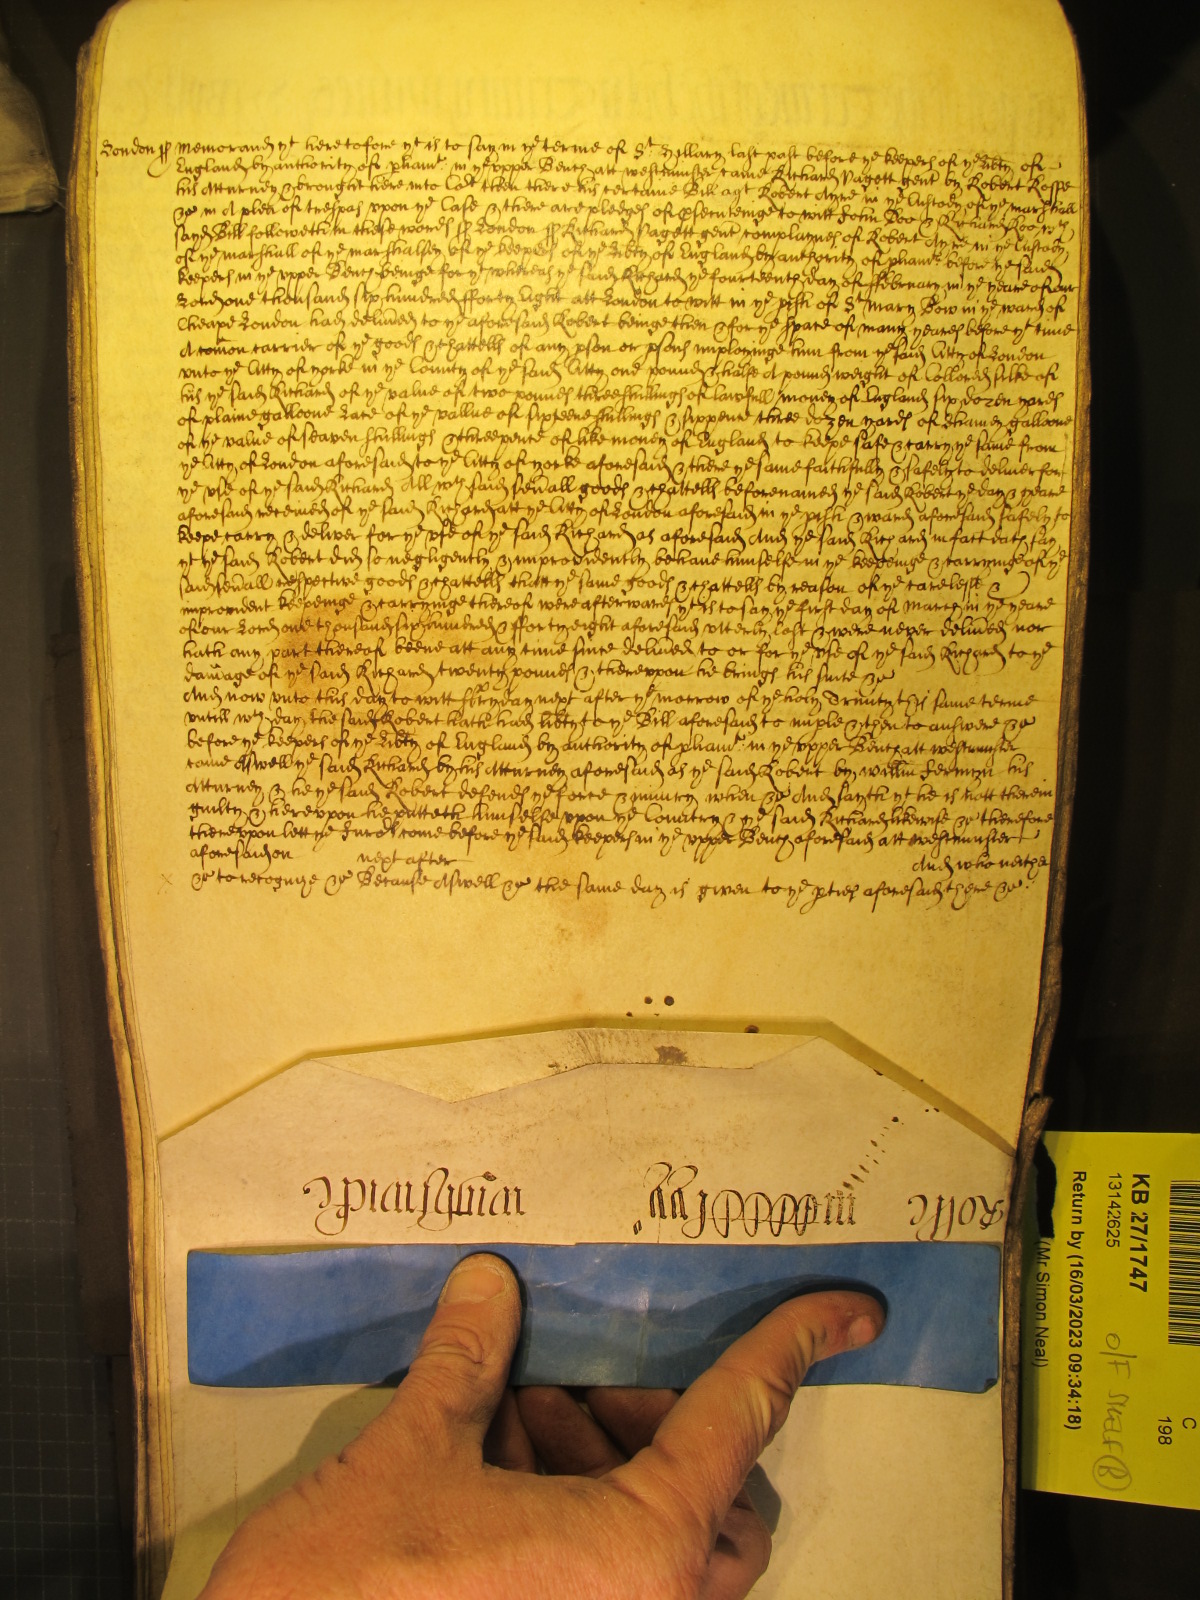 London ss Memorand yt heretofore yt is to say in ye terme of St Hillary last past before ye keepers of ye libty of
England by authority of parliamt in ye upper Bench att Westminster came Richard Pagett gent by Robert Rosse
his Atturney & brought here into Cort then there his certaine Bill agt Robert Ayre in ye Custody of ye marshall
&c in A plea of trespas upon ye Case & there are pledges of psecuteinge to witt John Doo & Richard Roo wch
sayd Bill followeth in these words ss London ss Richard Pagett gent complaynes of Robert Ayre in ye Custody
of ye marshall of ye marshalsey of ye keepers of ye libty of England by authority of parliamt before ye said
keepers in ye upper Bench beinge for yt whereas ye said Richard ye fourteenth day of ffebruary in ye yeare of our
Lord one thousand six hundred fforty Eight att London to witt in ye pish of St Mary Bow in ye ward of
Cheape London had delivered to ye aforesaid Robert beinge then & for ye space of many yeares before yt time
A comon carrier of ye goods & chattells of any pson or psons imployinge him from ye said Citty of London
unto ye Citty of Yorke in ye County of ye said Citty one pound & halfe A pound weight of Collored silke of
his ye said Richard of ye value of two pounds three shillings of lawfull money of England six dozen yards
of plaine galloone Lace of ye vallue of sixteene shillings & sixpence three dozen yards of galloone
of ye value of seaven shillings & threepence of like money of England to keepe safe & carry ye same from
ye Citty of London aforesaid to ye Citty of Yorke aforesaid & there ye same faithfully & safely to deliver for
ye use of ye said Richard All wch said sevall goods & chattells beforenamed ye said Robert ye day & yeare
aforesaid received of ye said Richard att ye Citty of London aforesaid in ye pish & ward aforesaid safely to
keepe carry & deliver for ye use of ye said Richard as aforesaid And ye said Richard in fact doth say
yt ye said Robert did so negligently & improvidently behave himselfe in ye keepeinge & carryinge of ye
said sevall respective goods & chattells thatt ye same goods & chattells by reason of ye carelesse &
improvident keepeinge & carryinge thereof were afterwards yt is to say ye first day of March in ye yeare
of our Lord one thousand six hundred & fforty eight aforesaid utterly lost & were never delived nor
hath any part thereof beene att any time since delived to or for ye use of ye said Richard to ye
damage of ye said Richard twenty pounds & thereupon he brings his suite &c
And now unto this day to witt ffryday next after ye morrow of ye holy Trinity this same terme
untill wch day the said Robert hath had libty to ye Bill aforesaid to imple & then to answere &c
before ye keepers of ye Libty of England by authority of parliamt in ye upper Bench att Westminster
came Aswell ye said Richard by his Atturney aforesaid as ye said Robert by Willm his
Atturney & he ye said Robert defends ye force & iniury when &c And sayth yt he is nott therein
guilty & thereupon he putteth himselfe upon ye Country & ye said Richard likewise &c therefore
thereupon lett ye Jurors come before ye said keepers in ye upper Bench aforesaid att Westminster
aforesaid on next after And who neither
&c to recognize &c Because Aswell &c the same day is given to ye pties aforesaid there &c
Rolle
KB 27/1747
13142625
Return by (16/03/2023 09:34:18)
(Mr Simon Neal)
C
198
O/F